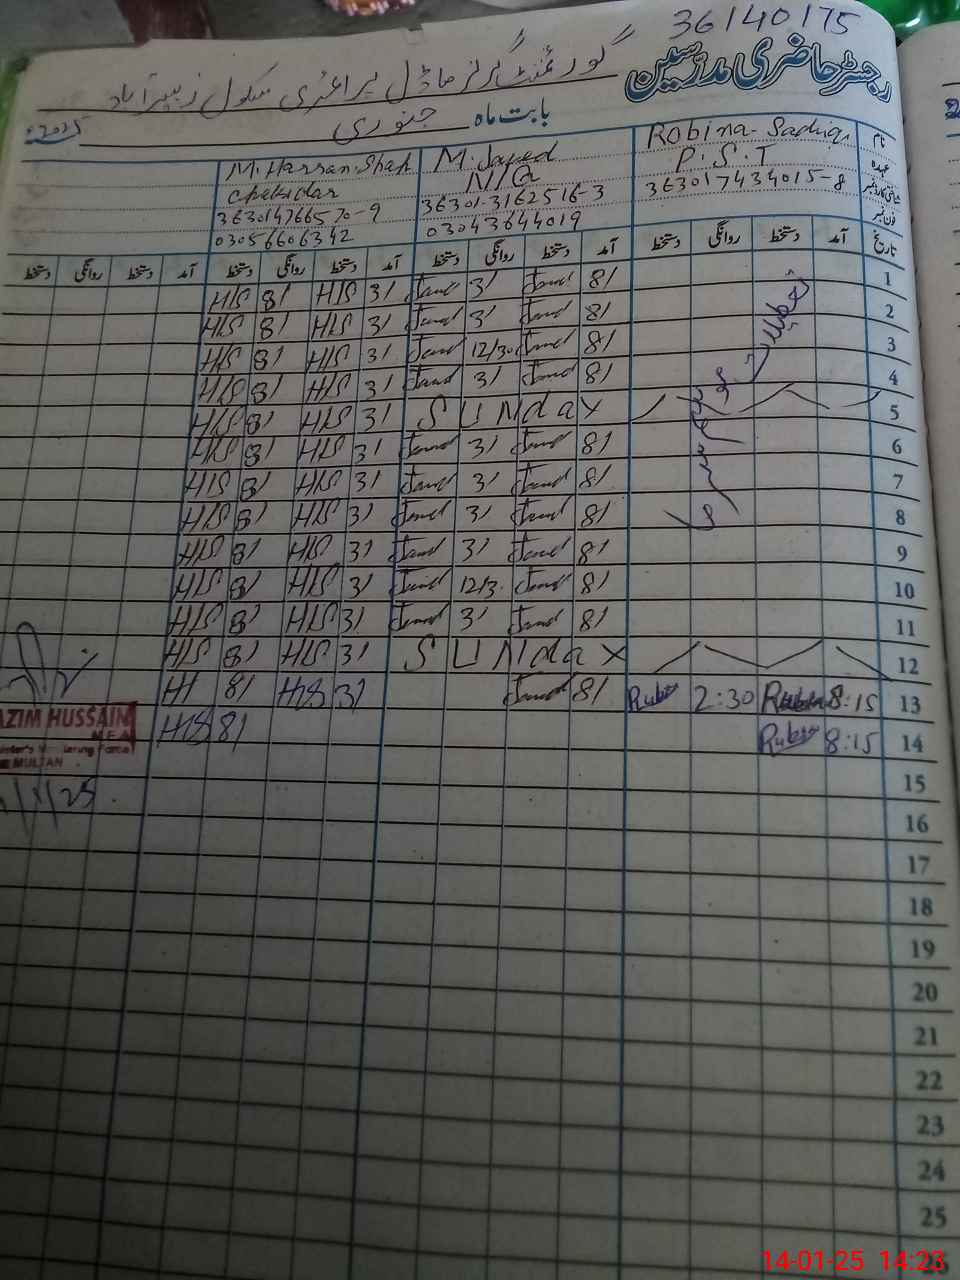 36140175
رجسٹر حاضری مدرسین
گورنمنٹ گرلز ماڈل پرائمری سکول زبیر آباد
بابت ماہ جنوری 2025ء
نام Robina Sadiq M. Javed M. Hassan Shah
عہدہ P.S.T N/Q Chokidar
شناختی کارڈ نمبر 363017434015-8 36301-3162516-3 363014766570-9
فون نمبر 03043644019 03056606342
تاریخ آمد دستخط روانگی دستخط آمد دستخط روانگی دستخط آمد دستخط روانگی دستخط آمد دستخط روانگی دستخط
1 81 Javed 31 Javed 31 HIS 81 HIS
2 81 Javed 31 Javed 31 HIS 81 HIS
3 81 Javed 12/30 Javed 31 HIS 81 HIS
4 81 Javed 31 Javed 31 HIS 81 HIS
5 SUNday 31 HIS 81 HIS
6 81 Javed 31 Javed 31 HIS 81 HIS
7 81 Javed 31 Javed 31 HIS 81 HIS
8 81 Javed 31 Javed 31 HIS 81 HIS
9 81 Javed 31 Javed 31 HIS 81 HIS
10 81 Javed 12/3 Javed 31 HIS 81 HIS
11 81 Javed 31 Javed 31 HIS 81 HIS
12 SUNday 31 HIS 81 HIS
13 8:15 Rubin 2:30 Rub 81 Javed 31 HIS 81 HI
14 8:15 Rubin 81 HIS
15
16
17
18
19
20
21
22
23
24
25
تعطیلات موسم سرما
AZIM HUSSAIN
M.E.A
Monitoring Force
MULTAN
/1/25
14-01-25 14:23